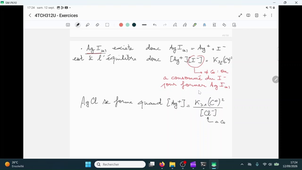 4TCH312U - Exercices
· AgI(s) existe donc AgI(s) = Ag⁺ + I⁻
est à l'équilibre donc [Ag⁺][I⁻] = Ks₂(C°)²
≠ C₀ : on
a consommé du I⁻
pour former AgI(s)
AgCl se forme quand [Ag⁺] = Ks₁(C°)²
[Cl⁻]
= C₀
Rechercher